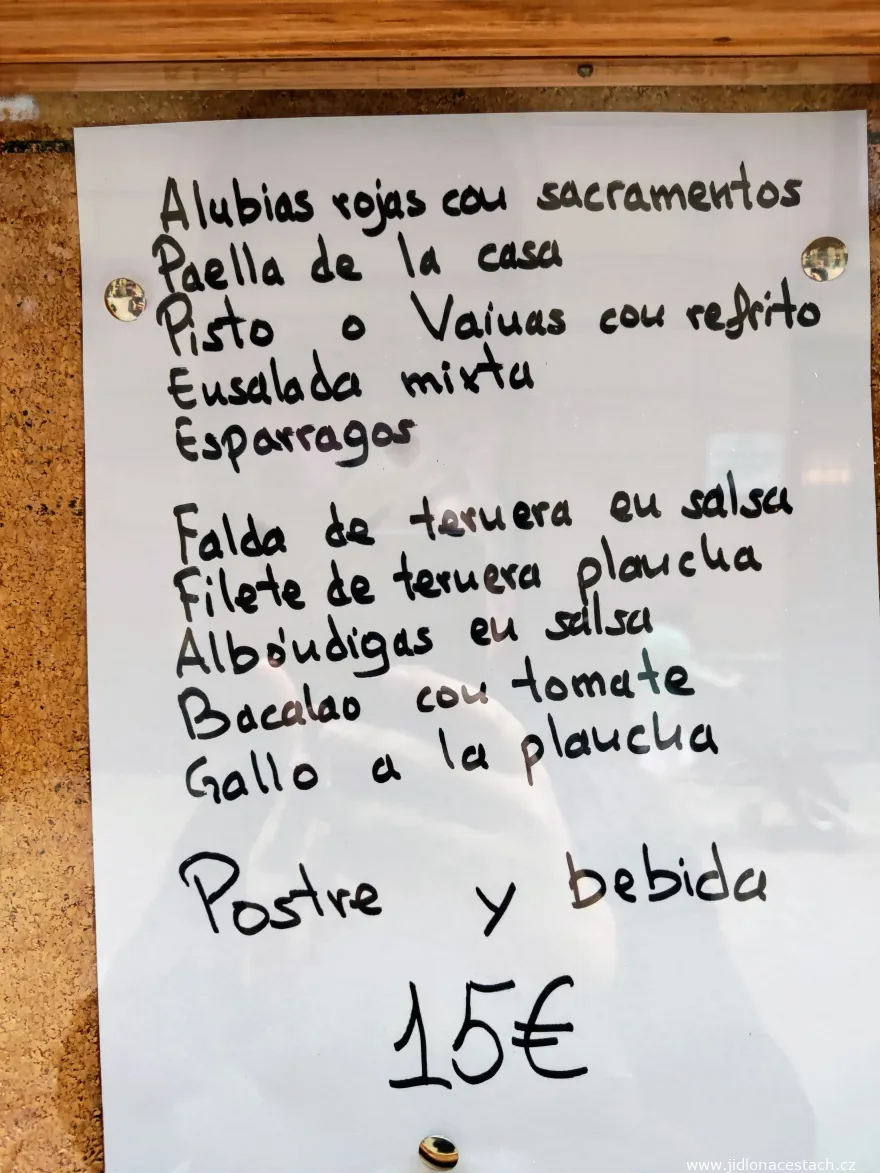 Alubias rojas con sacramentos
Paella de la casa
Pisto o Vainas con refrito
Ensalada mixta
Esparragos
Falda de ternera en salsa
Filete de ternera plancha
Albóndigas en salsa
Bacalao con tomate
Gallo a la plancha
Postre y bebida
15€
www.jidlonacestach.cz